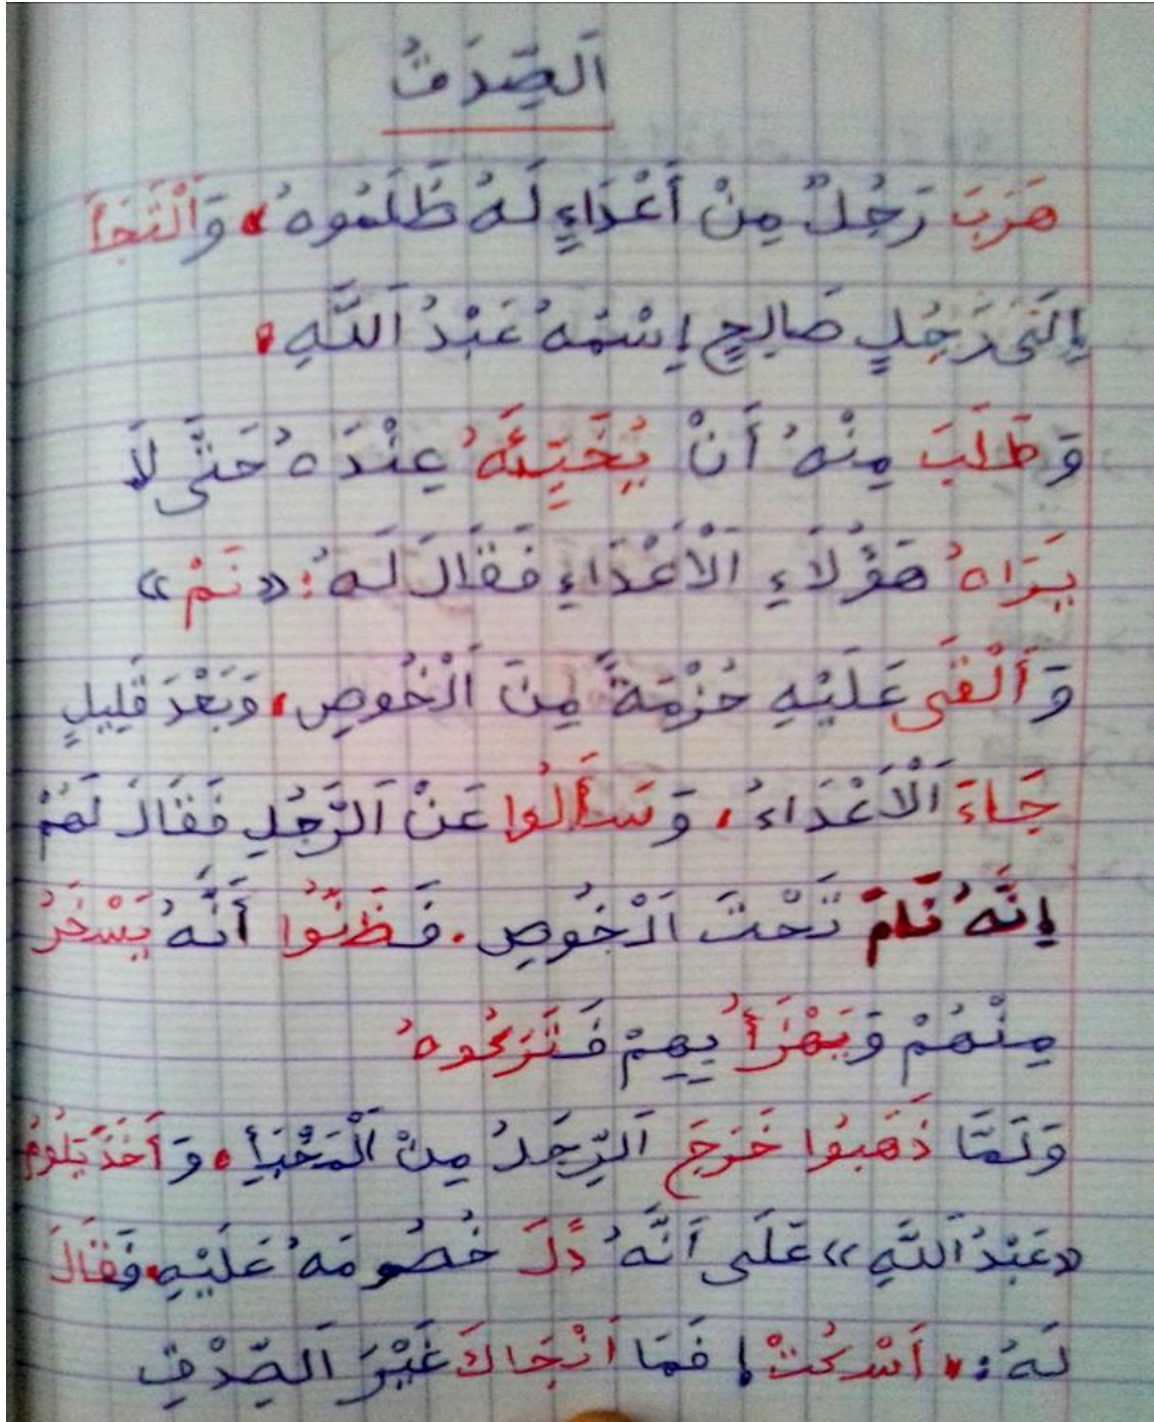 اَلصِّدْقُ
هَرَبَ رَجُلٌ مِنْ أَعْدَاءٍ لَهُ ظَلَمُوهُ، وَالْتَجَأَ
إِلَى رَجُلٍ صَالِحٍ إِسْمُهُ عَبْدُ اَللَّهِ.
وَطَلَبَ مِنْهُ أَنْ يُخَبِّئَهُ عِنْدَهُ حَتَّى لَا
يَرَاهُ هَؤُلَاءِ اَلْأَعْدَاءِ فَقَالَ لَهُ: «نَمْ»
وَأَلْقَى عَلَيْهِ حُزْمَةً مِنَ اَلْخُوصِ، وَبَعْدَ قَلِيلٍ
جَاءَ اَلْأَعْدَاءُ، وَسَأَلُوا عَنْ اَلرَّجُلِ فَقَالَ لَهُمْ
إِنَّهُ نَامَ تَحْتَ اَلْخُوصِ. فَظَنُّوا أَنَّهُ يَسْخَرُ
مِنْهُمْ وَيَهْزَأُ بِهِمْ فَتَرَكُوهُ
وَلَمَّا ذَهَبُوا خَرَجَ اَلرَّجُلُ مِنْ اَلْمَخْبَأِ. وَأَخَذَ يَلُومُ
«عَبْدُ اَللَّهِ» عَلَى أَنَّهُ دَلَّ خُصُومَهُ عَلَيْهِ. فَقَالَ
لَهُ: اَسْكُتْ! فَمَا أَنْجَاكَ غَيْرَ اَلصِّدْقِ